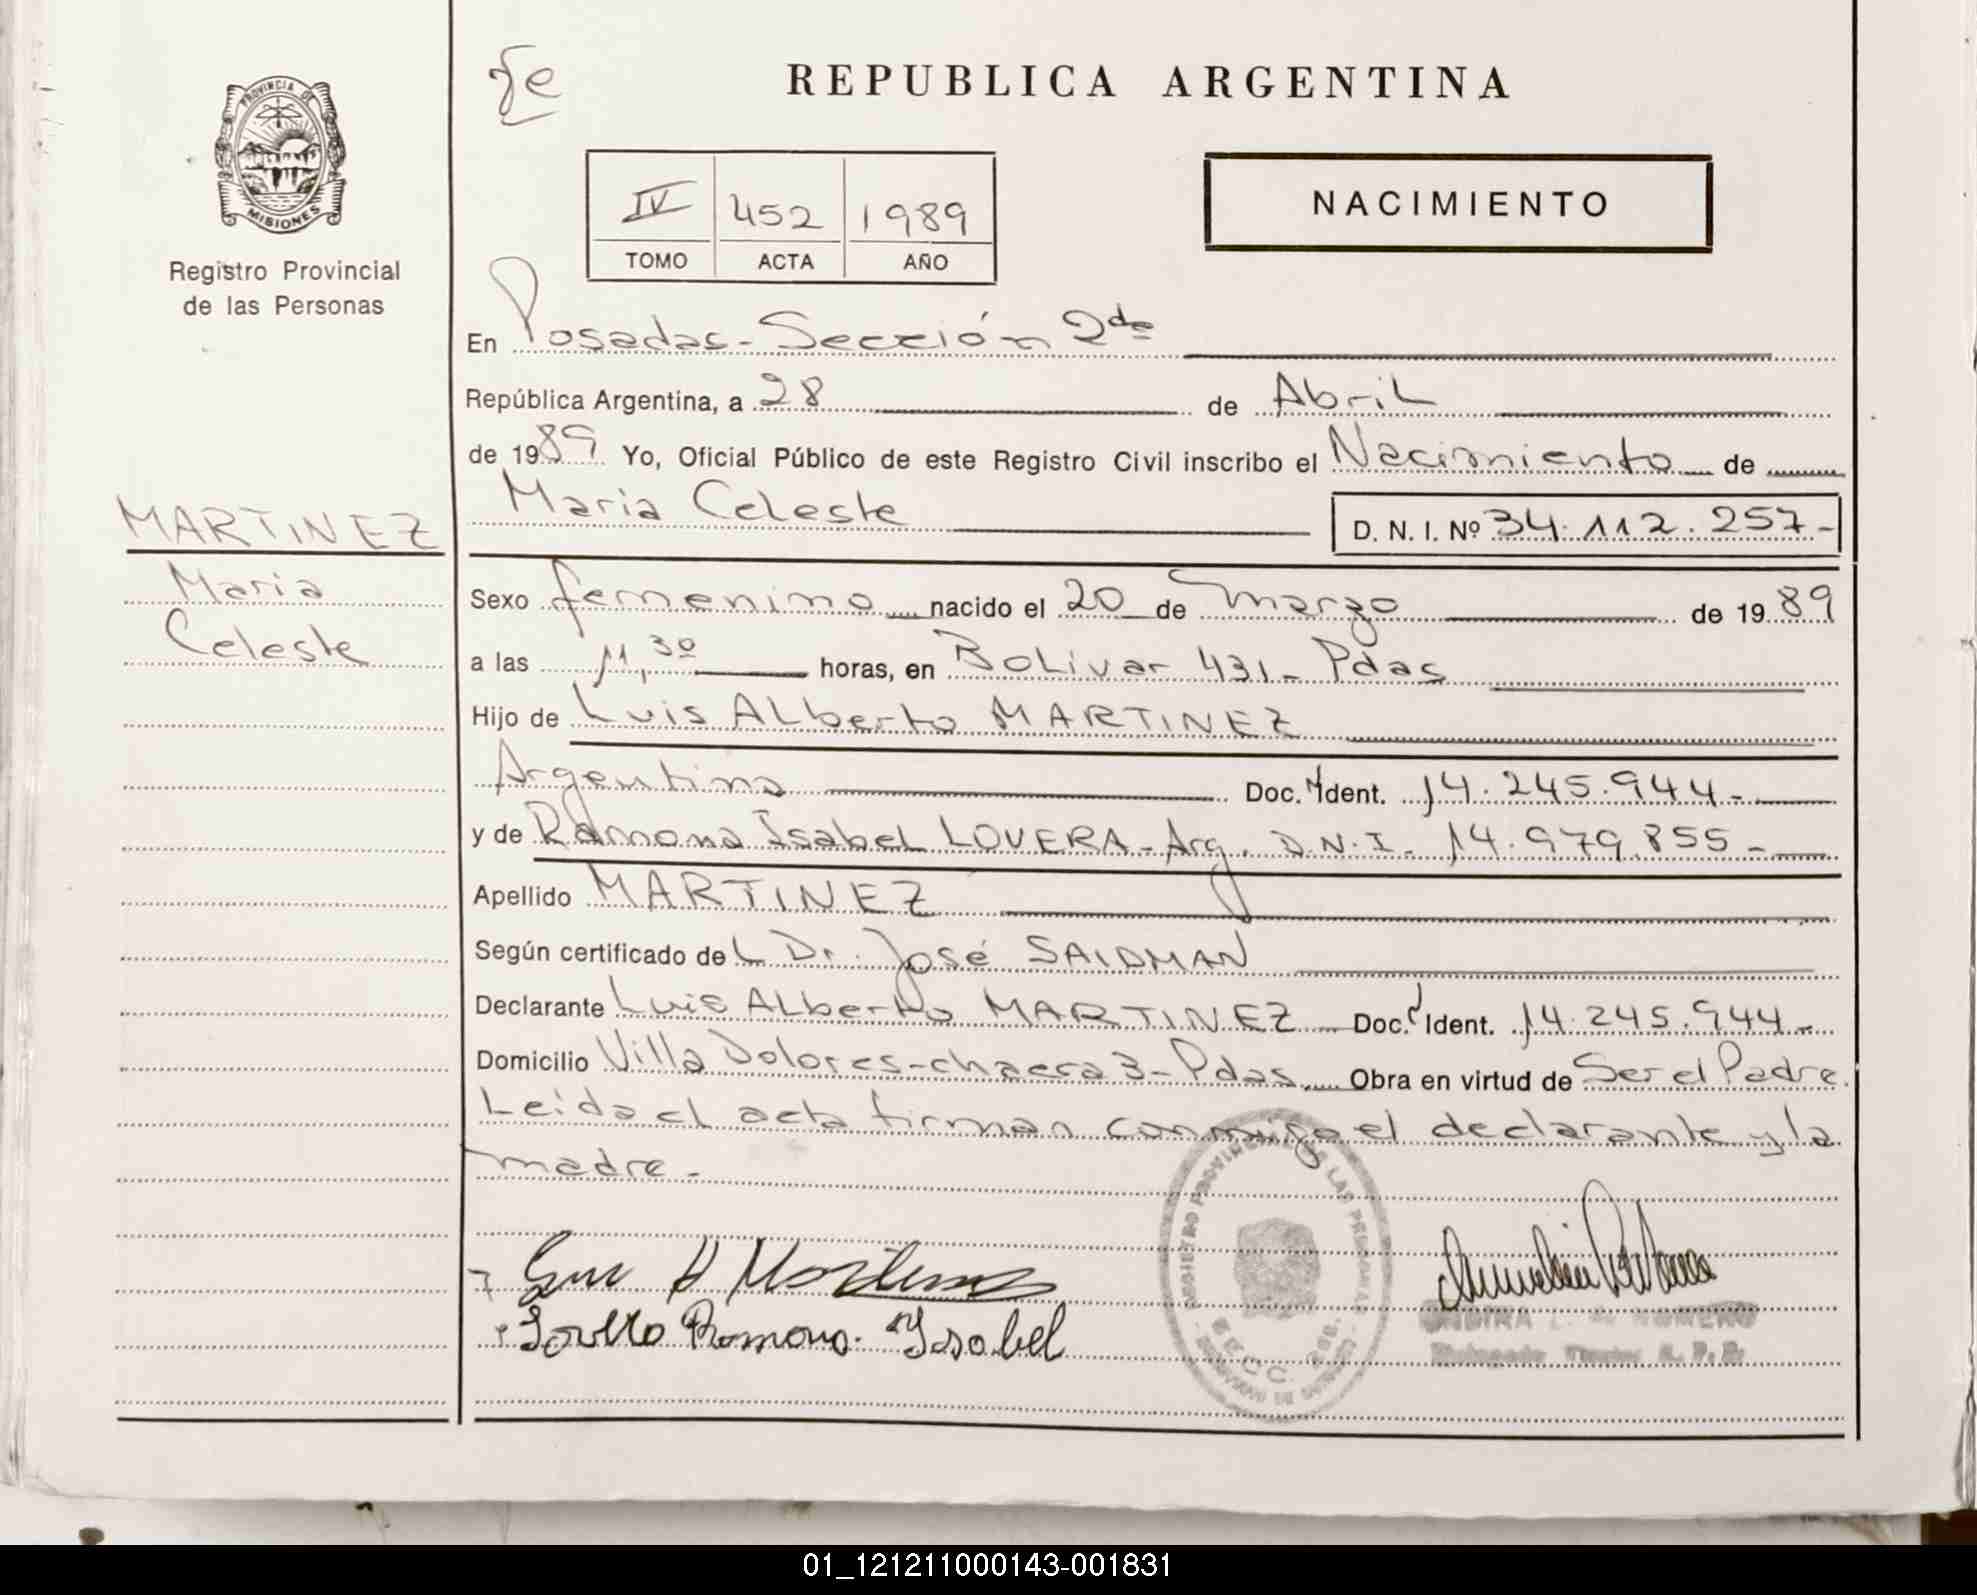 PROVINCIA DE
MISIONES
Registro Provincial
de las Personas
fe
REPUBLICA ARGENTINA
NACIMIENTO
IV 452 1989
TOMO ACTA AÑO
En Posadas - Sección 2da
República Argentina, a 28 de Abril
de 1989 Yo, Oficial Público de este Registro Civil inscribo el Nacimiento de
Maria Celeste D. N. I. Nº 34.112.257-
MARTINEZ
Maria
Celeste
Sexo femenino nacido el 20 de marzo de 1989
a las 11,30 horas, en Bolivar 431 - Pdas
Hijo de Luis Alberto MARTINEZ
Argentino Doc. Ident. 14.245.944-
y de Ramona Isabel LOVERA - Arg. D.N.I. 14.979.855-
Apellido MARTINEZ
Según certificado del Dr. José SAIDMAN
Declarante Luis Alberto MARTINEZ Doc. Ident. 14.245.944-
Domicilio Villa Dolores - chacra 3 - Pdas Obra en virtud de Ser el Padre.
Leida el acta firman conmigo el declarante y la
madre -
Luis A Martinez
Ramona Ysabel
REGISTRO PROVINCIAL DE LAS PERSONAS
01_121211000143-001831